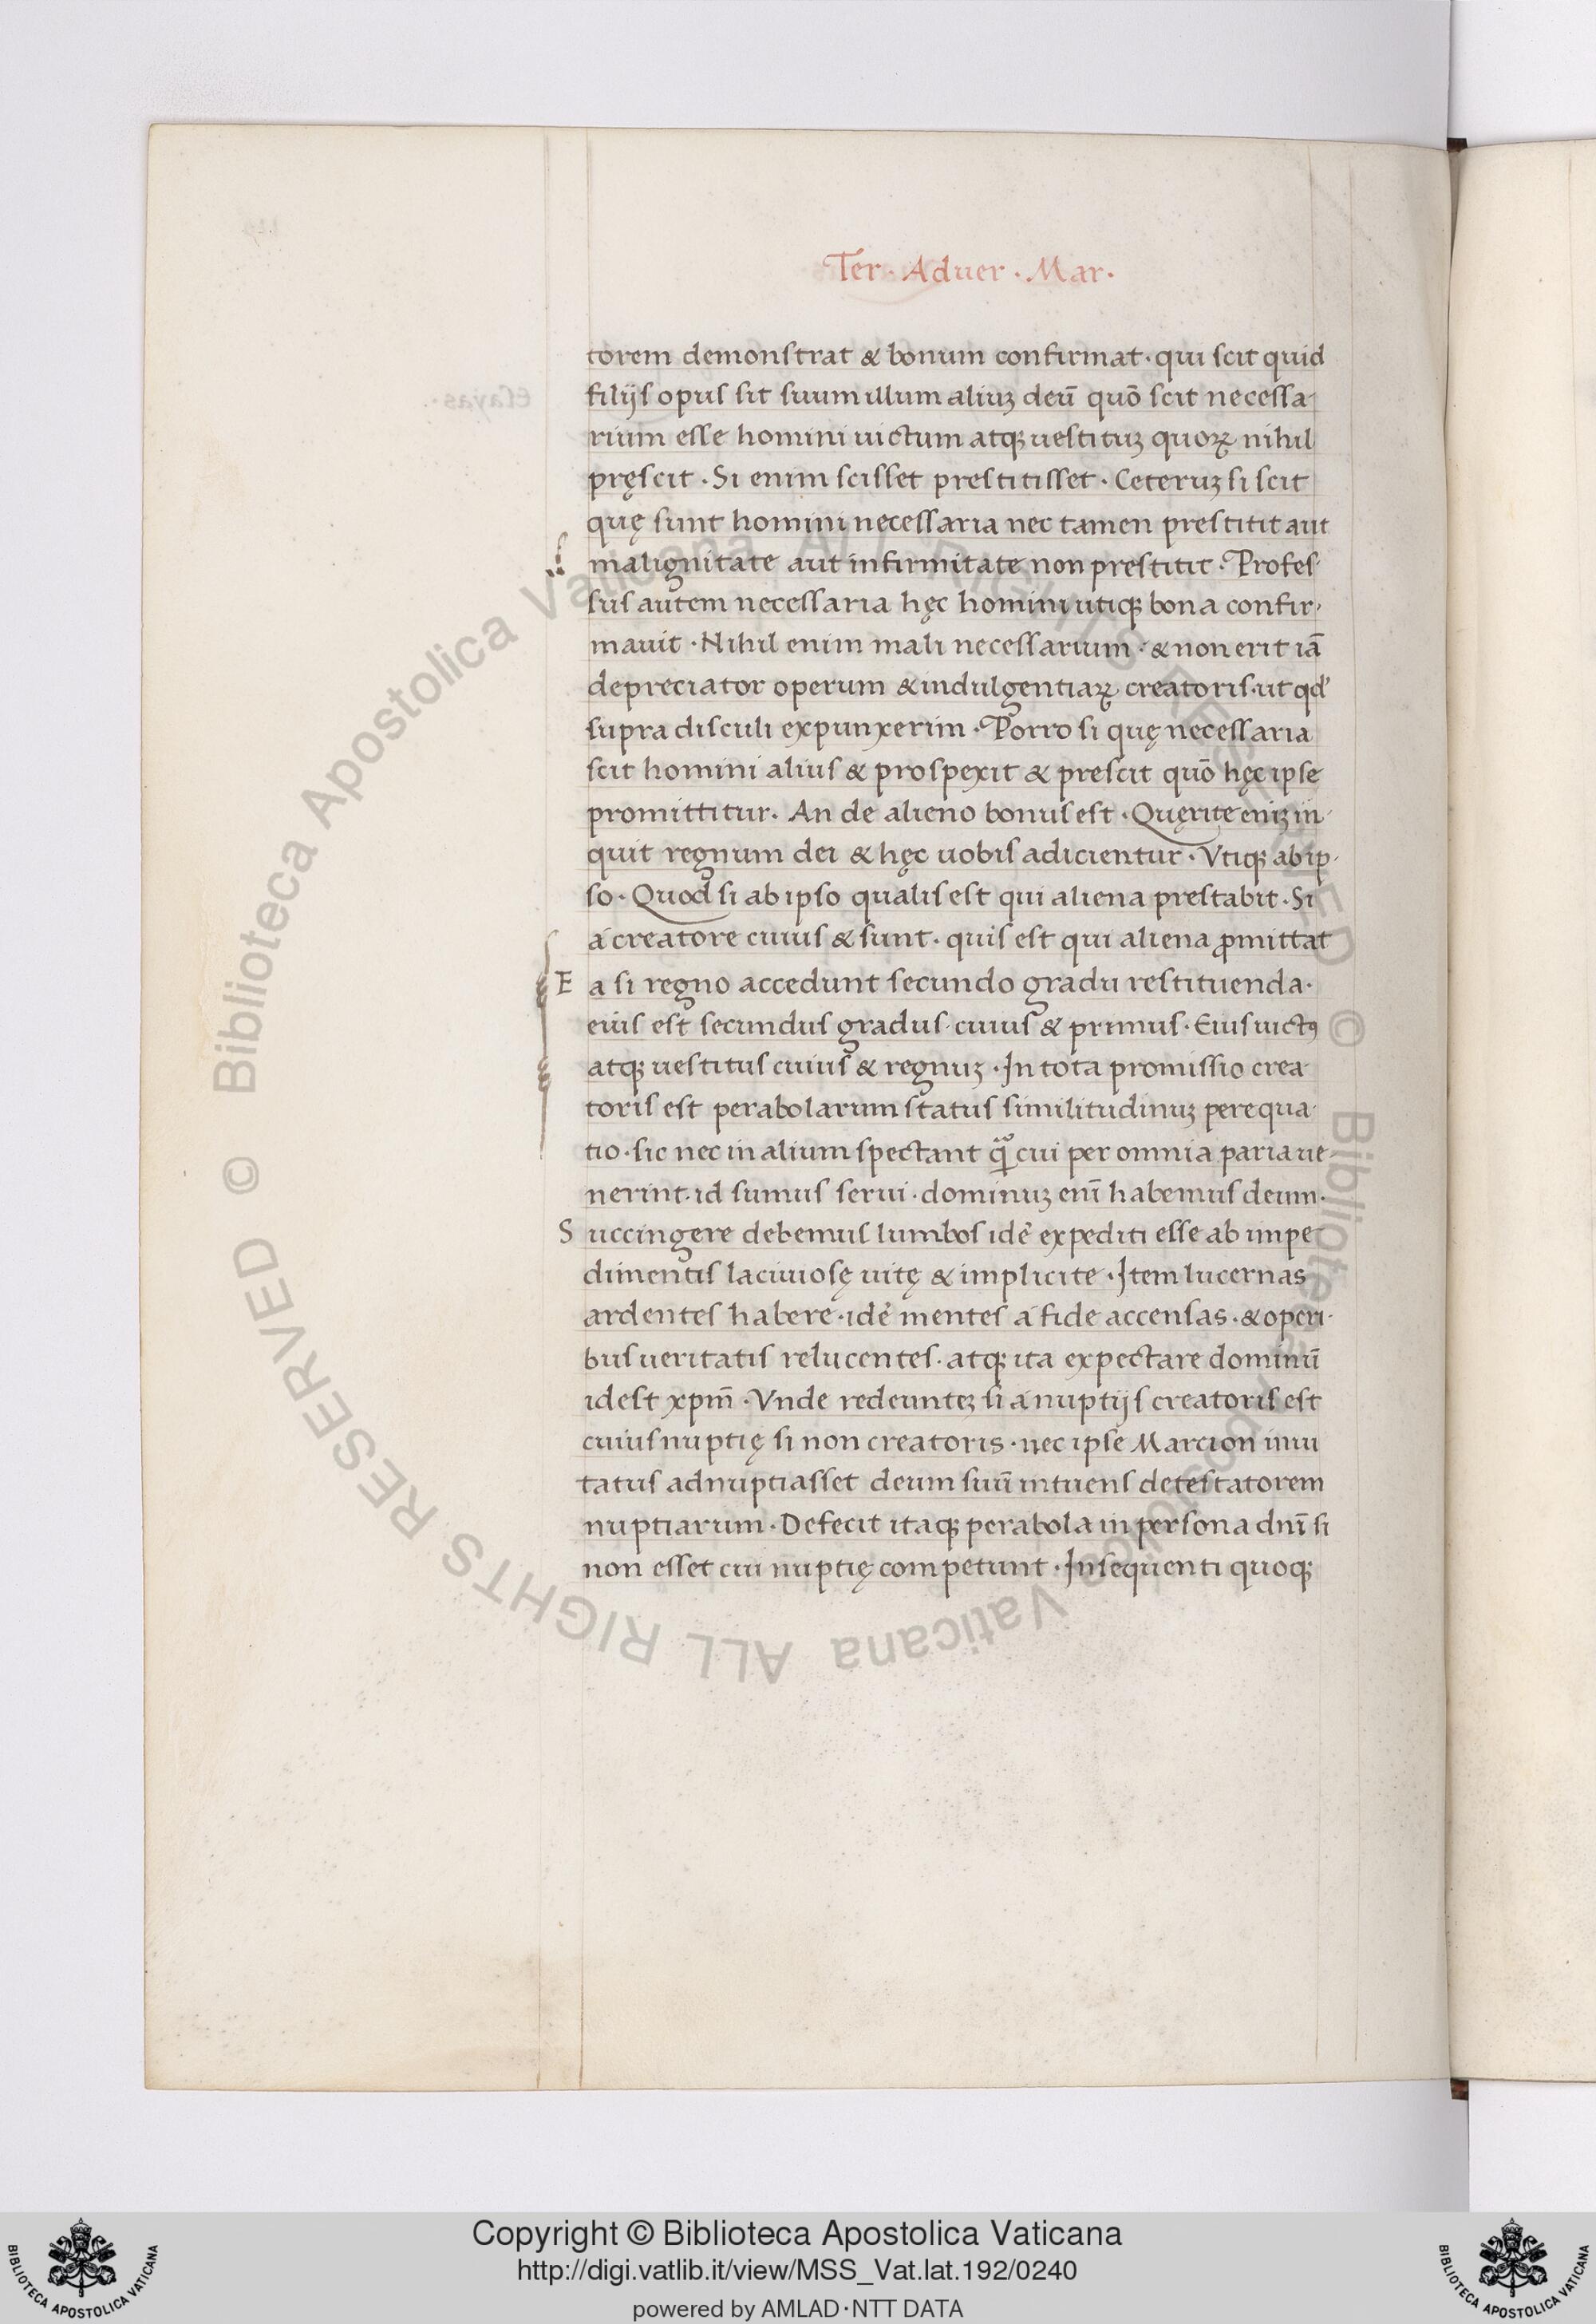 Ter. Aduer. Mar.
torem demonstrat & bonum confirmat. qui scit quid
filijs opus sit suum illum aliuꝫ deū quō scit necessa-
rium esse homini uictum atqꝫ uestituꝫ quoꝝ nihil
pręscit. Si enim scisset prestitisset. Ceteruꝫ si scit
quę sunt homini necessaria nec tamen prestitit aut
malignitate aut infirmitate non prestitit. Profes-
sus autem necessaria hęc homini utiqꝫ bona confir-
mauit. Nihil enim mali necessarium. & non erit iā
depreciator operum & indulgentiaꝝ creatoris. ut qd'
supra disculi expunxerim. Porro si quę necessaria
scit homini alius & prospexit & prescit quō hęc ipse
promittitur. An de alieno bonus est. Quęrite eniꝫ in-
quit regnum dei & hęc uobis adicientur. Vtiqꝫ ab ip-
so. Quod si ab ipso qualis est qui aliena prestabit. Si
á creatore cuius & sunt. quis est qui aliena ꝓmittat
E a si regno accedunt secundo gradu restituenda.
eius est secundus gradus. cuius & primus. Eius uictꝰ
atqꝫ uestitus cuius & regnuꝫ. In tota promissio crea-
toris est perabolarum status similitudinuꝫ perequa-
tio. sic nec in alium spectant cui per omnia paria ue-
nerint. id sumus serui. dominuꝫ enī habemus deum.
S uccingere debemus lumbos idē expediti esse ab impe
dimentis laciuiosę uitę & implicite. Item lucernas
ardentes habere. idē mentes á fide accensas. & operi-
bus ueritatis relucentes. atqꝫ ita expectare dominū
idest xpm̄. Vnde redeunteꝫ si á nuptijs creatoris est
cuius nuptię si non creatoris. nec ipse Marcion inui
tatus ad nuptiasset deum suū intuens detestatorem
nuptiarum. Defecit itaqꝫ perabola in persona dnī si
non esset cui nuptię competunt. Insequenti quoqꝫ
© Biblioteca Apostolica Vaticana ALL RIGHTS RESERVED © Biblioteca Apostolica Vaticana ALL RIGHTS RESERVED
Copyright © Biblioteca Apostolica Vaticana
http://digi.vatlib.it/view/MSS_Vat.lat.192/0240
powered by AMLAD·NTT DATA
BIBLIOTECA APOSTOLICA VATICANA
BIBLIOTECA APOSTOLICA VATICANA